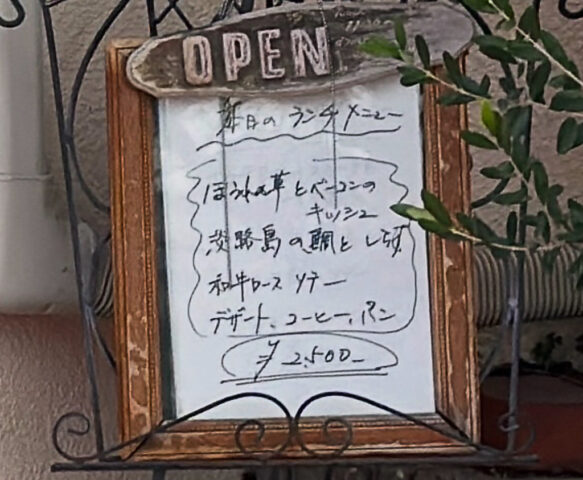 OPEN
本日のランチメニュー
ほうれん草とベーコンの
キッシュ
淡路島の鯛と
和牛ロースソテー
デザート、コーヒー、パン
¥2,500-